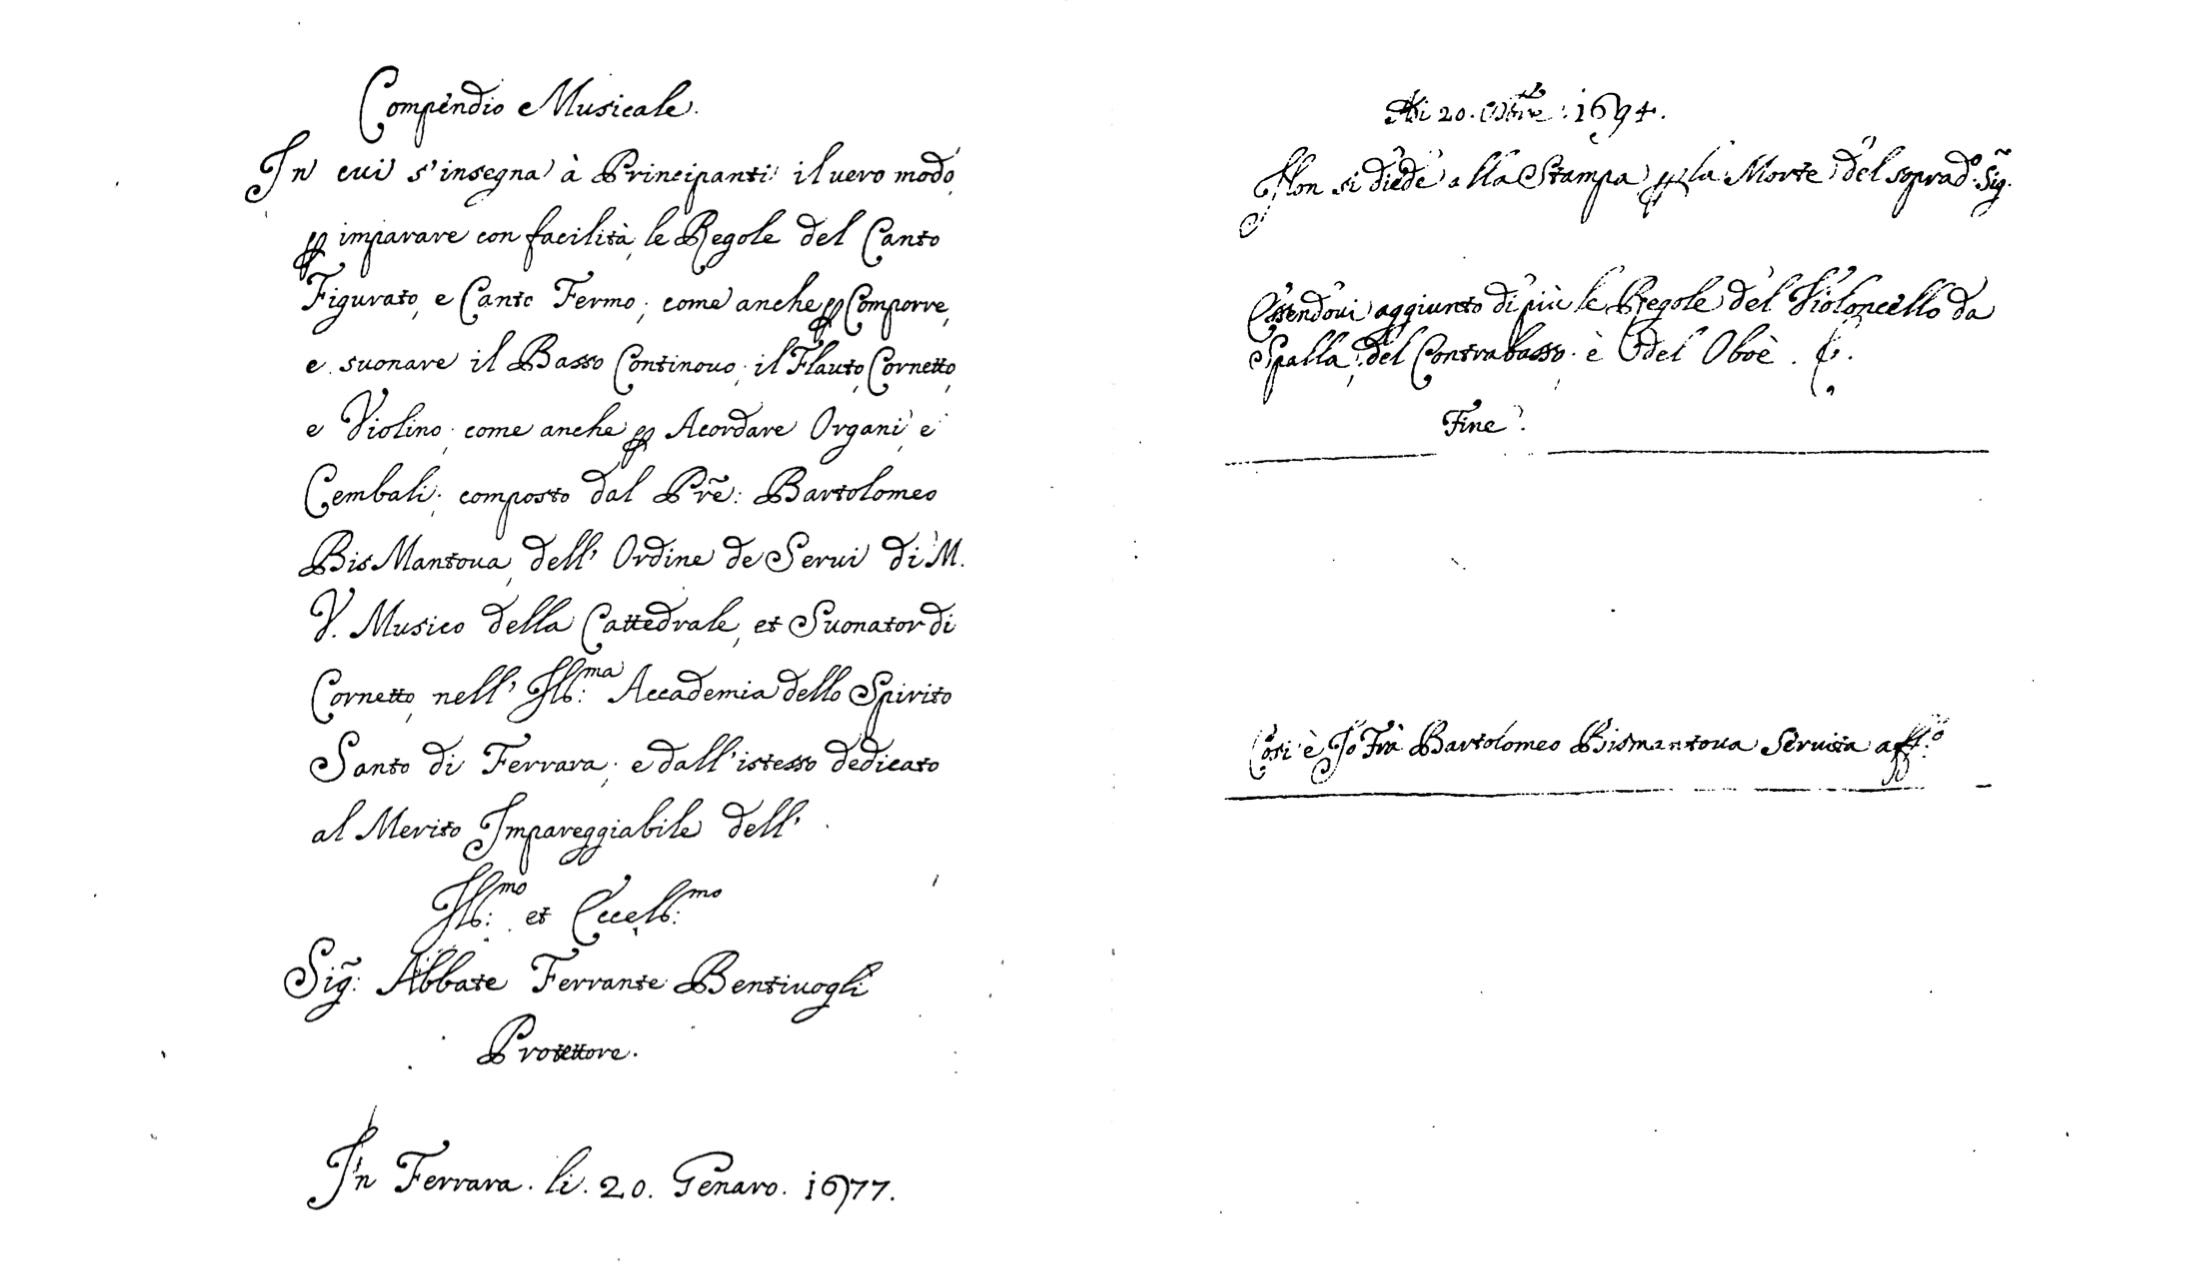 Compendio Musicale.
In cui s'insegna à Principanti il uero modo,
per imparare con facilità, le Regole del Canto
Figurato, e Canto Fermo; come anche per Comporre,
e suonare il Basso Continouo; il Flauto, Cornetto,
e Violino; come anche per Acordare Organi, e
Cembali; composto dal Prẽ: Bartolomeo
BisMantoua, dell' Ordine de Serui di M.
V. Musico della Cattedrale, et Suonator di
Cornetto, nell' Ill:ma Accademia dello Spirito
Santo di Ferrara; e dall'istesso dedicato
al Merito Impareggiabile dell'
Ill:mo et Eccell:mo
Sig̃: Abbate Ferrante Bentiuogli
Protettore.
In Ferrara. li. 20. Genaro. 1677.
Adi 20. : 1694.
Non si diede alla Stampa per la Morte del soprad.o Sig̃.
Essendoui aggiunto di più le Regole del Violoncello da
Spalla, del Contrabasso, è del Oboè.
Fine.
Cosi è Io Frà Bartolomeo Bismantoua Seruita aff.o